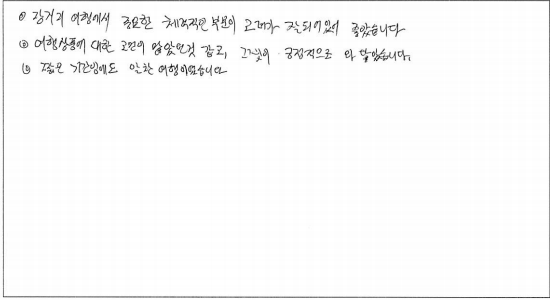 ① 장거리 여행에서 중요한 체력적인 부분의 고려가 잘되어있어 좋았습니다
② 여행상품에 대한 고민이 많았던것 같고, 그것이 긍정적으로 와 닿았습니다.
③ 짧은 기간임에도 알찬 여행이었습니다